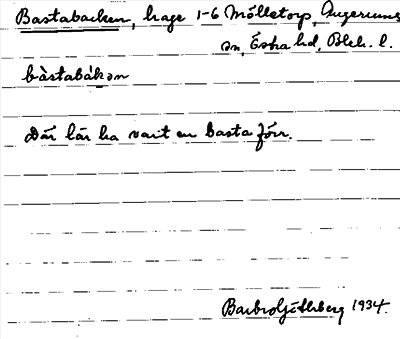 Bastabacken, hage 1-6 Mölletorp, Augerums
sn, Östra hd, Blek. l.
bàstabákən
Där lär ha varit en basta förr.
1934.